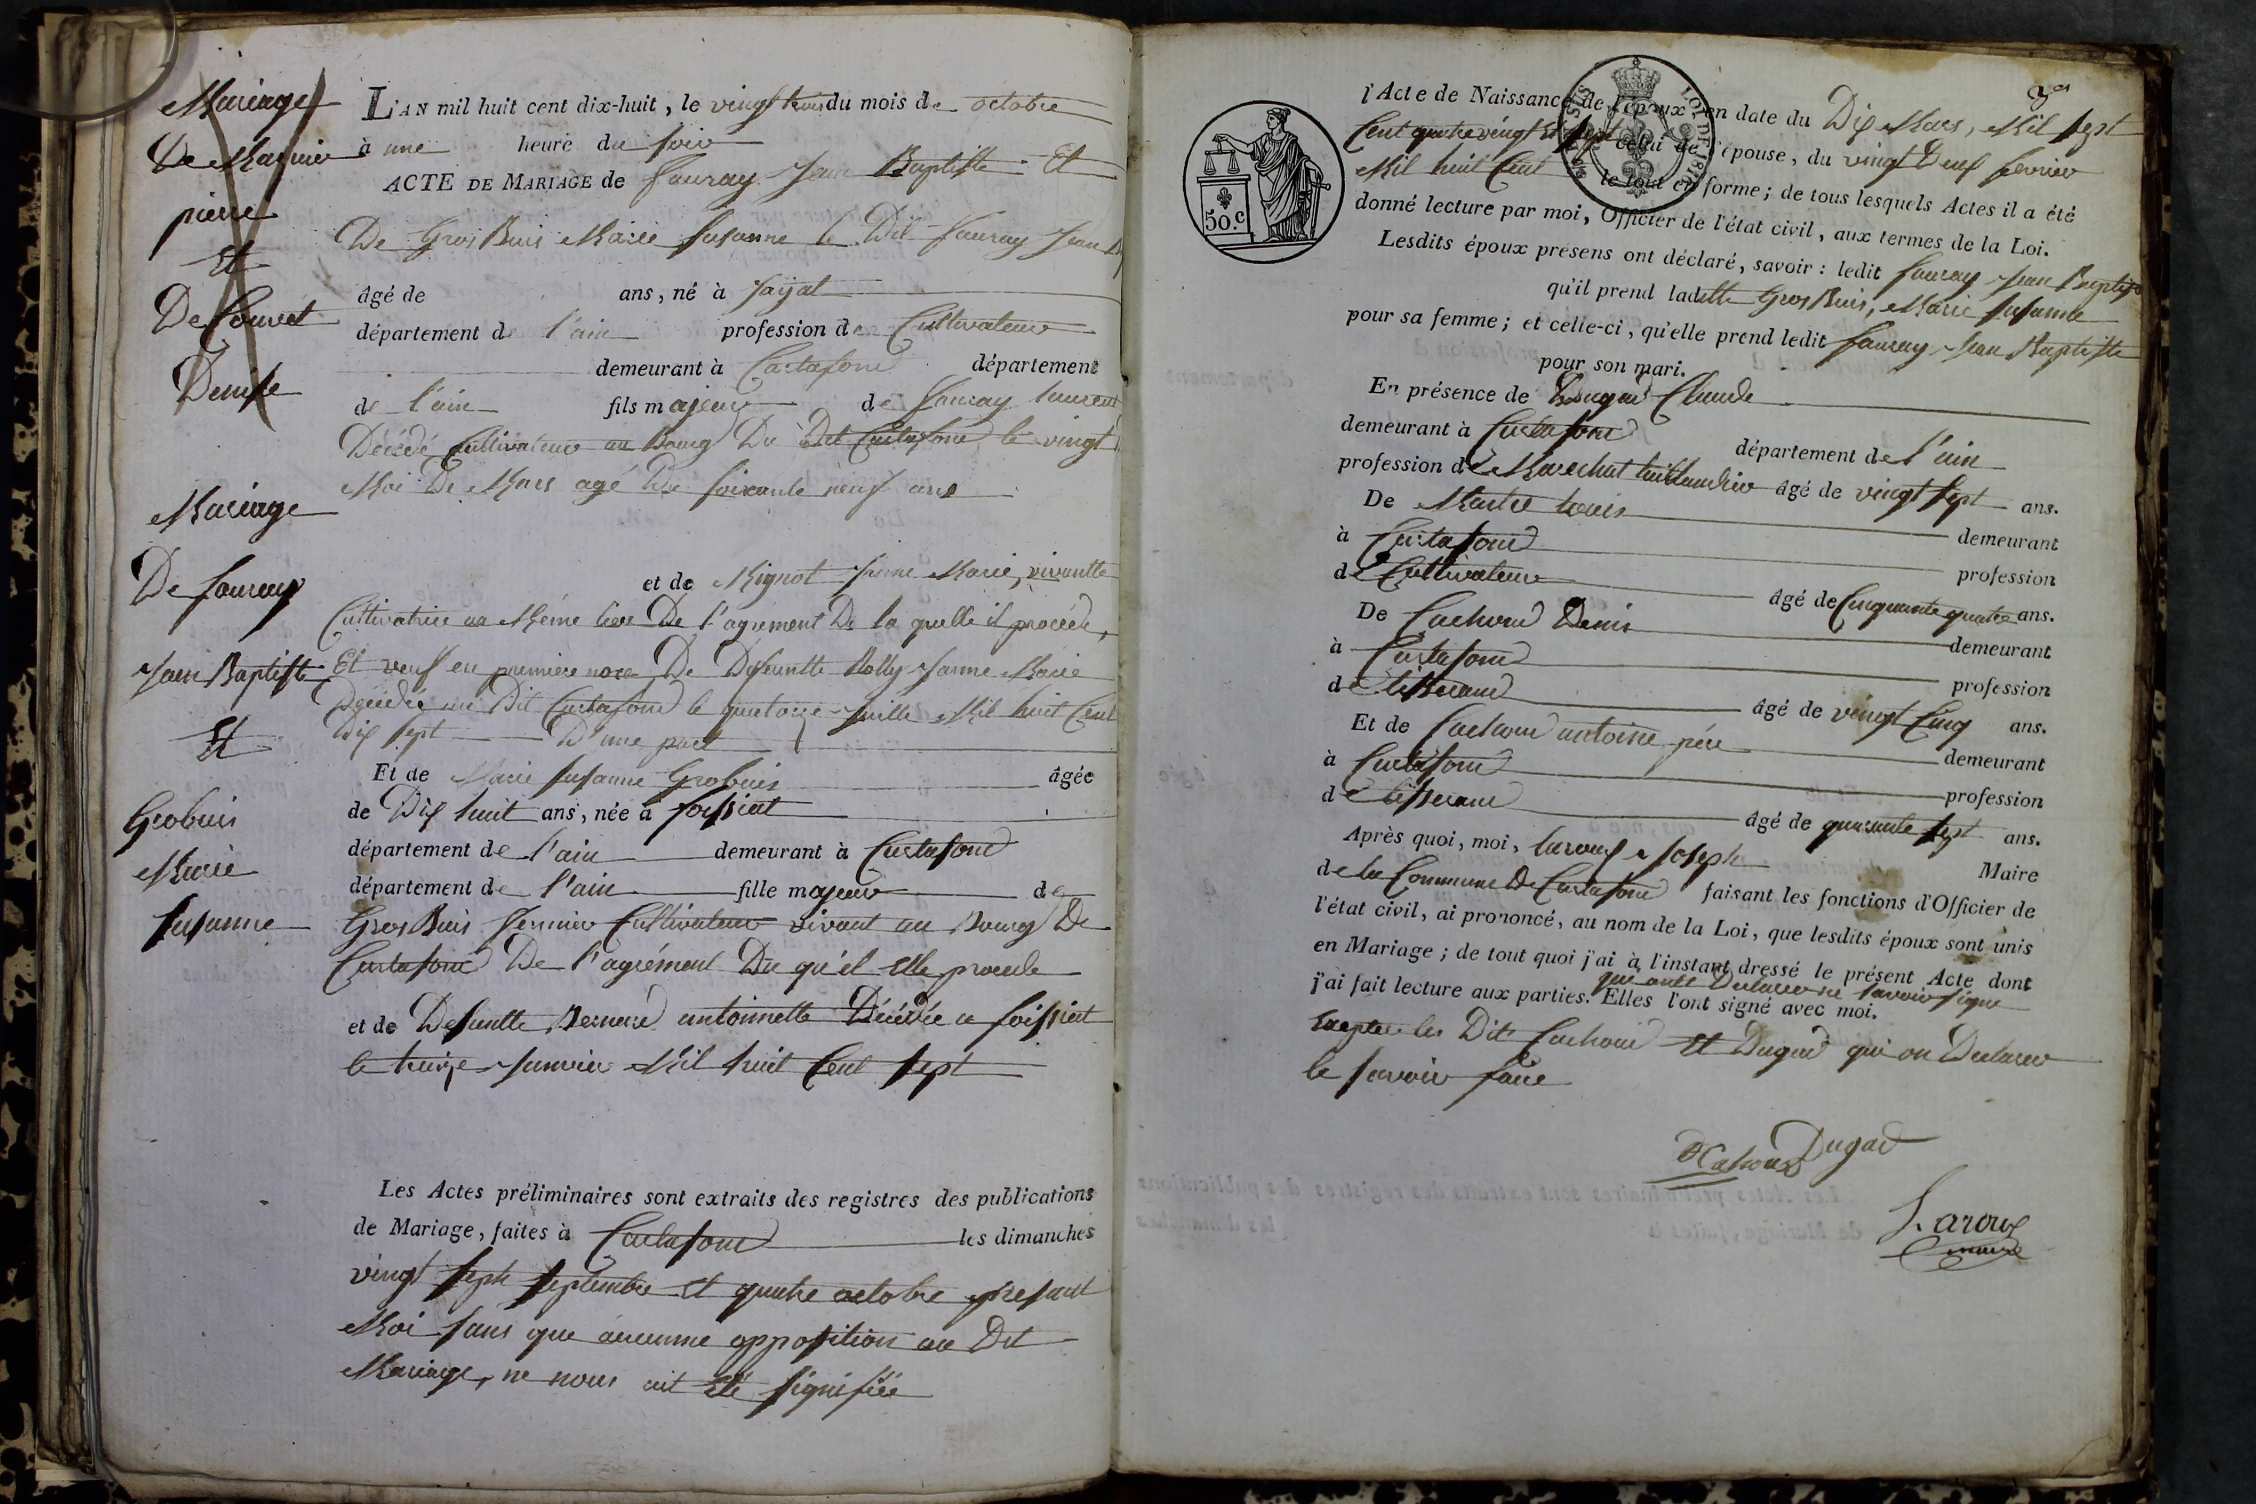 Mariage
De Marguin
pierre
Et
De Convert
Denise
Mariage
De fauray
Jaen Baptiste
Et
Grobuis
Marie
Susanne
L'AN mil huit cent dix-huit, le vingt trois du mois de octobre
à une heure du soir
ACTE DE MARIAGE de fauray Jean Baptiste Et
De Gros Buis Marie Susanne le Dit fauray Jean
âgé de ans, né à Jayat
département de l'ain profession de Cultivateur
demeurant à Curtafond département
de l'ain fils majeur de fauray laurent
Décédé Cultivateur au bourg Du Dit Curtafond le vingt
Moi De Mars agé De soixante neuf ans
et de Mignot Jeanne Marie, vivantte
Cultivatrice au Même lieu De l'agrément De la quelle il procéde,
Et veuf en premiere noce De Defuntte Rolly Jeanne Marie
Décédée au Dit Curtafond le quatorze Juille Mil huit Cent
Dix sept D'une part
Et de Marie Susanne Grobuis âgée
de Dix huit ans, née à foissiat
département de l'ain demeurant à Curtafond
département de l'ain fille majeur de
Gros Buis Cultivateur vivant au Bourg De
Curtafond De l'agrément Du qu'él elle procede
et de Defuntte antoinette Décédée a foissiat
le treize Janvier Mil huit Cent sept
Les Actes préliminaires sont extraits des registres des publications
de Mariage, faites à Curtafond les dimanches
vingt sept septembre et quatre octobre présent
Moi sans que aucunne opposition au Dit
Mariage, ne nous ait été signifiée
l'Acte de Naissance de l'époux en date du Dix Mars, Mil sept
Cent quatre vingt et sept celui de l'épouse, du vingt Deux fevrier
Mil huit Cent le tout en forme; de tous lesquels Actes il a été
donné lecture par moi, Officier de l'état civil, aux termes de la Loi.
50.c
LOI DE 1816
Lesdits époux présens ont déclaré, savoir: ledit fauray Jean Baptiste
qu'il prend ladette Gros Buis, Marie Susanne
pour sa femme; et celle-ci, qu'elle prend ledit fauray Jean Baptiste
pour son mari.
En présence de Dugad Claude
demeurant à Curtafond département de l'ain
profession de Marechal taillandier âgé de vingt sept ans.
De Martel louis demeurant
à Curtafond profession
de Cultivateur âgé de Cinquante quatre ans.
De Cachoud Denis demeurant
à Curtafond profession
de tisserand âgé de vingt Cinq ans.
Et de Cachoud antoine pére demeurant
à Curtafond profession
de tisserand âgé de quarante sept ans.
Après quoi, moi, laroux Joseph Maire
de la Commune De Curtafond faisant les fonctions d'Officier de
l'état civil, ai prononcé, au nom de la Loi, que lesdits époux sont unis
en Mariage; de tout quoi j'ai à l'instant dressé le présent Acte dont
qui onts Declarer ne savoir signe
j'ai fait lecture aux parties. Elles l'ont signé avec moi.
Excepter les Dit Cachoud Et Dugad qui on Declarer
le savoir faire
Dugad
Laroux
maire